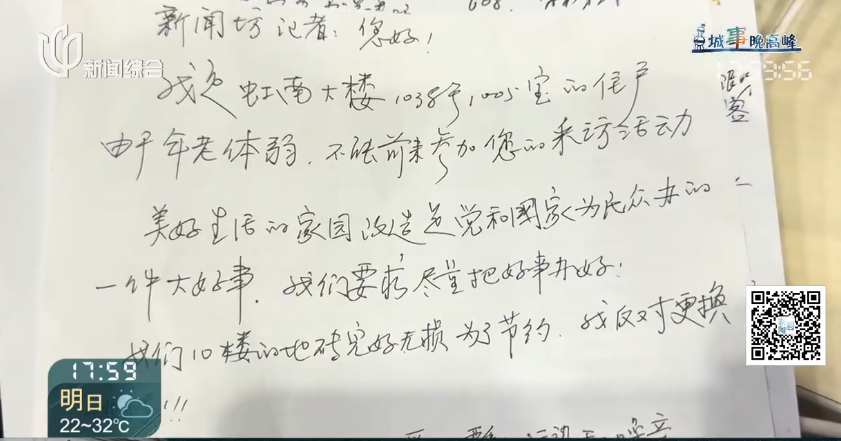 新闻综合
城事晚高峰
17:59:56
新闻坊记者：您好！
我是虹南大楼1038号1005室的住户
由于年老体弱，不能前来参加您的采访活动
美好生活的家园改造是党和国家为民众办的
一件大好事，我们要求尽量把好事办好；
我们10楼的地砖完好无损为了节约，我反对更换
!!!
客
17:59
明日
22~32℃